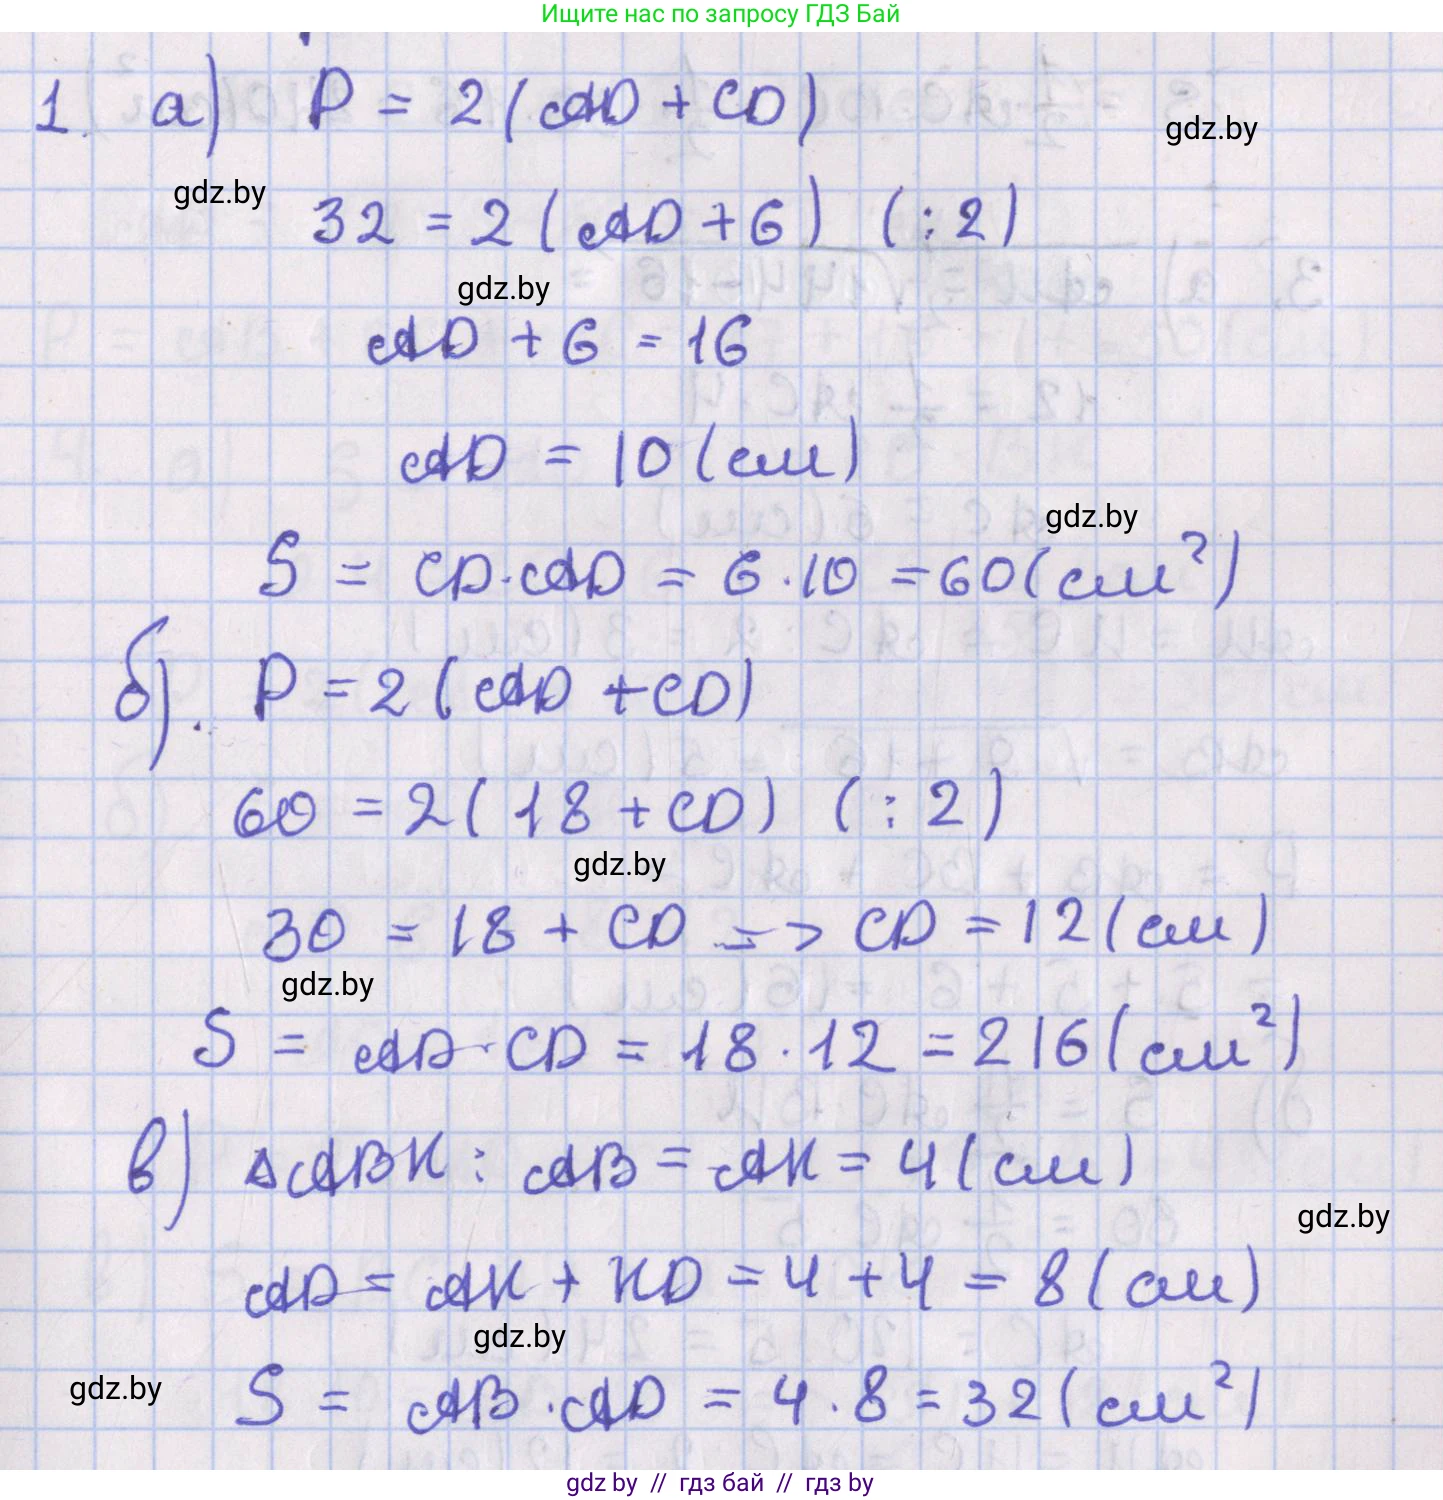 Ищите нас по запросу ГДЗ Бай
1. а) P = 2(AD + CD)
gdz.by
gdz.by
32 = 2(AD + 6) (:2)
gdz.by
AD + 6 = 16
AD = 10 (см)
gdz.by
S = CD·AD = 6·10 = 60 (см²)
б). P = 2(AD + CD)
60 = 2(18 + CD) (:2)
gdz.by
30 = 18 + CD => CD = 12 (см)
gdz.by
S = AD·CD = 18·12 = 216 (см²)
в) ΔABK: AB = AK = 4 (см)
gdz.by
AD = AK + KD = 4 + 4 = 8 (см)
gdz.by
gdz.by
S = AB·AD = 4·8 = 32 (см²)
gdz.by // гдз бай // гдз by